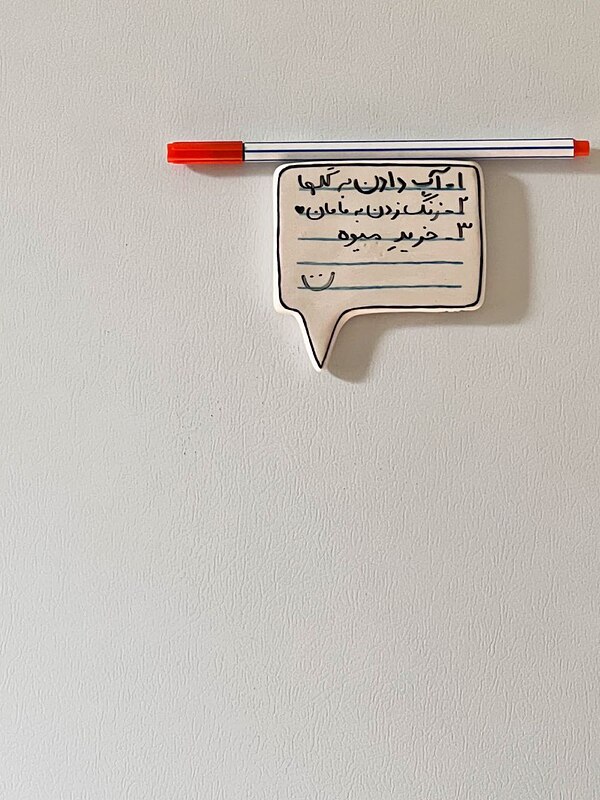 ۱- آب دادن به گلها
۲- زنگ زدن به مامان ♥
۳- خریدِ میوه